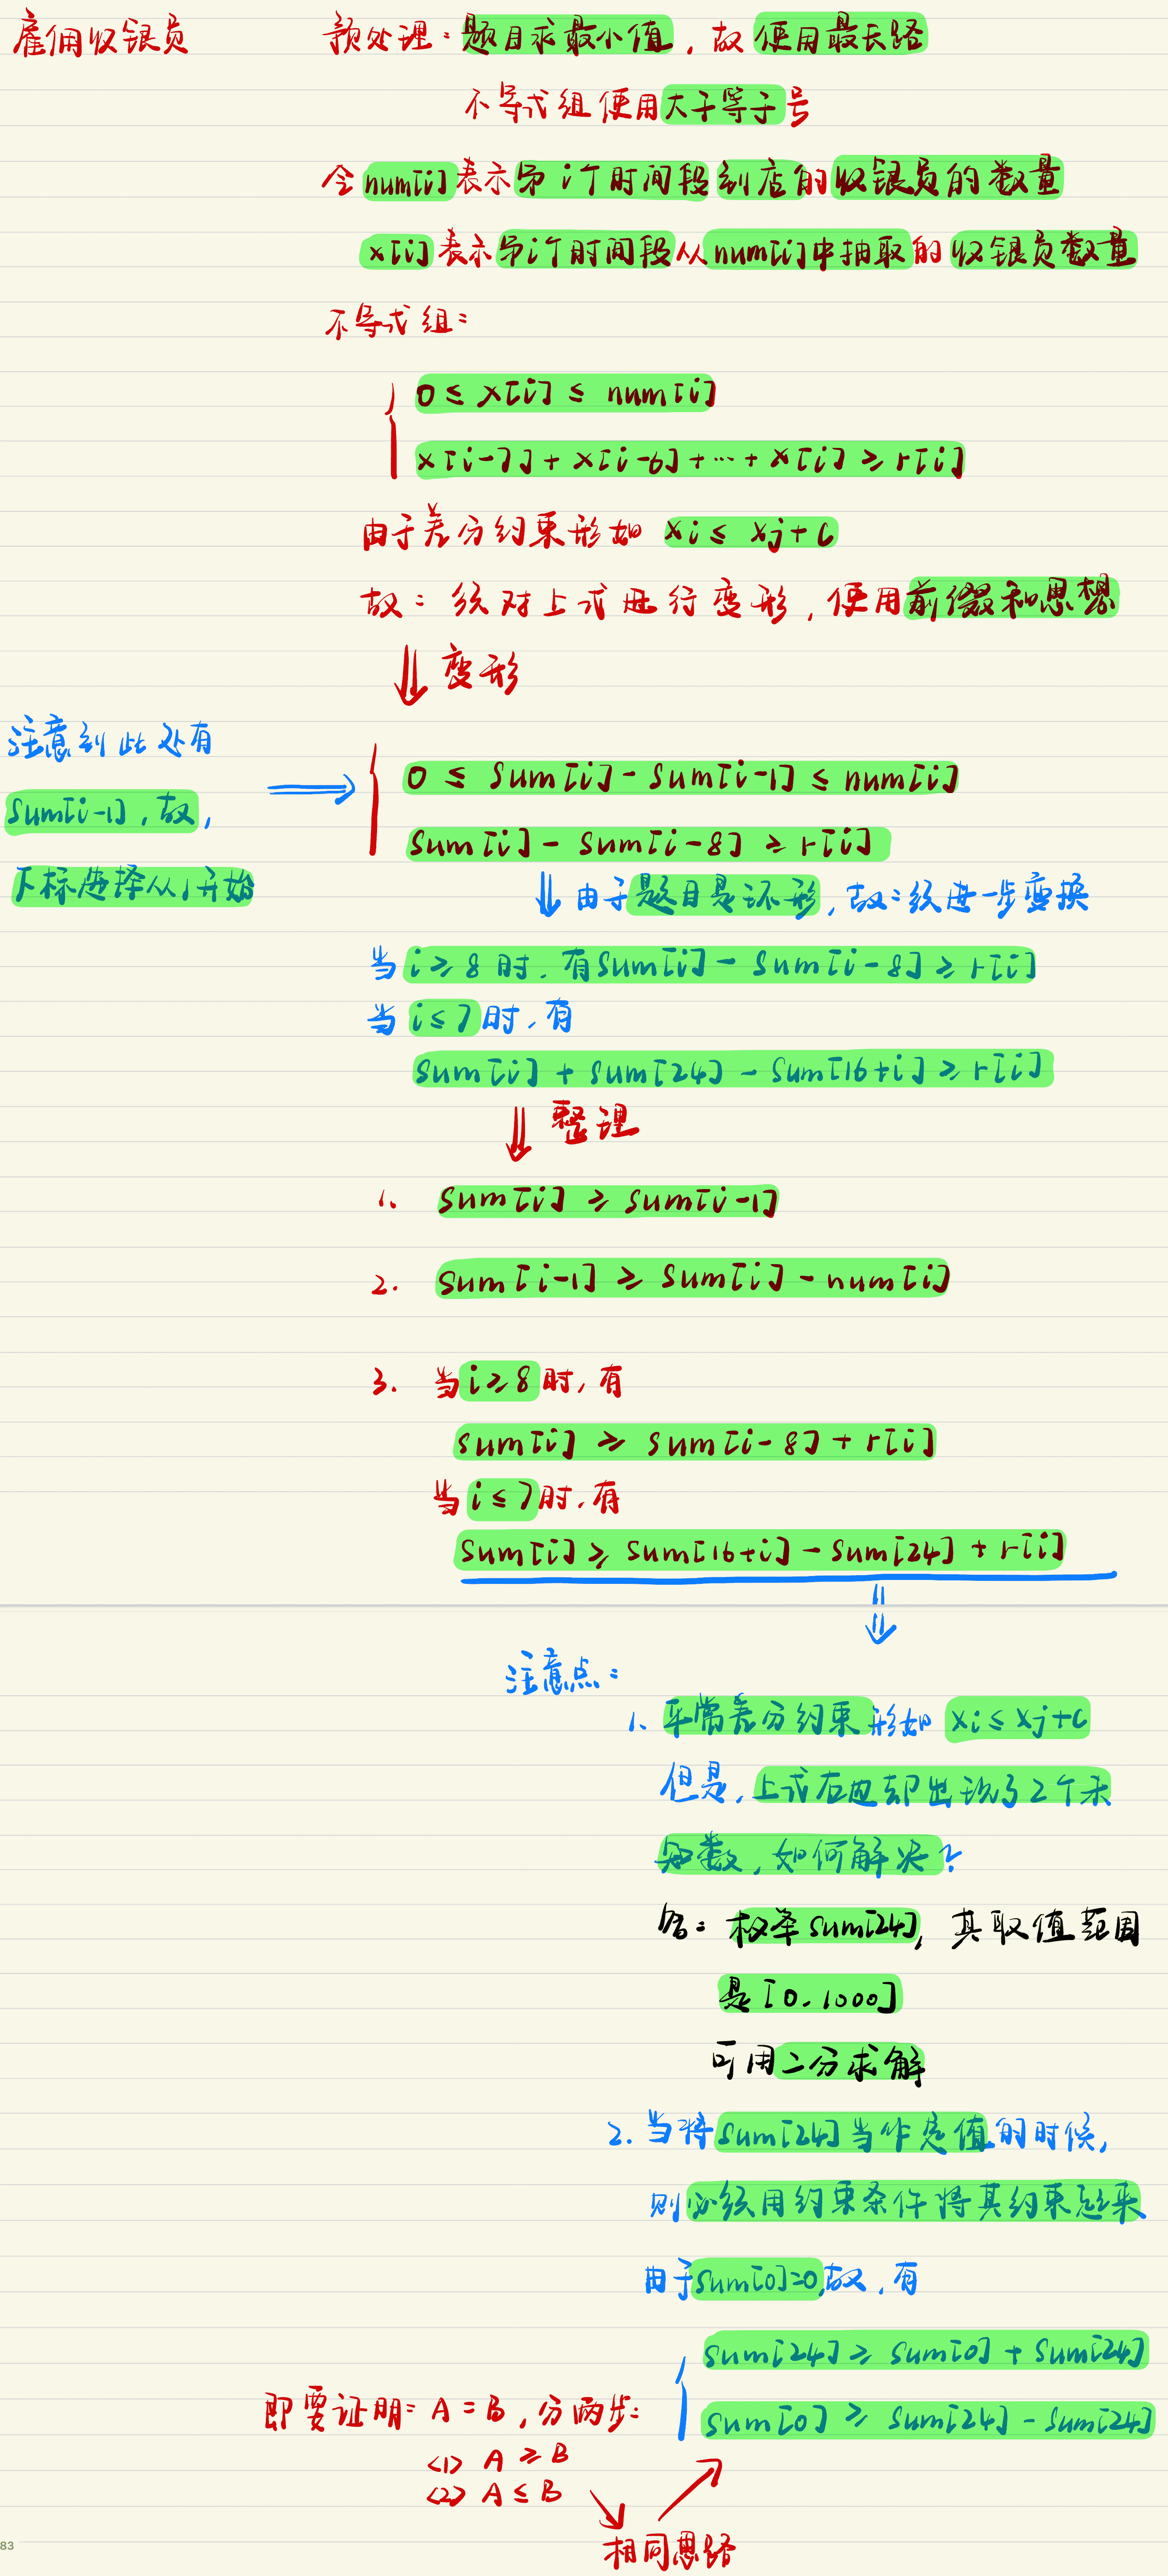 雇佣收银员
预处理：题目求最小值，故使用最长路
不等式组使用大于等于号
令num[i]表示第i个时间段到店的收银员的数量
x[i]表示第i个时间段从num[i]中抽取的收银员数量
不等式组：
0 ≤ x[i] ≤ num[i]
x[i-7] + x[i-6] + … + x[i] ≥ r[i]
由于差分约束形如 xi ≤ xj + c
故：须对上式进行变形，使用前缀和思想
⇓ 变形
注意到此处有
sum[i-1]，故，
下标选择从1开始
0 ≤ sum[i] - sum[i-1] ≤ num[i]
sum[i] - sum[i-8] ≥ r[i]
⇓ 由于题目是环形，故：须进一步变换
当 i ≥ 8 时，有sum[i] - sum[i-8] ≥ r[i]
当 i ≤ 7 时，有
sum[i] + sum[24] - sum[16+i] ≥ r[i]
⇓ 整理
1、 sum[i] ≥ sum[i-1]
2. sum[i-1] ≥ sum[i] - num[i]
3. 当 i ≥ 8 时，有
sum[i] ≥ sum[i-8] + r[i]
当 i ≤ 7 时，有
sum[i] ≥ sum[16+i] - sum[24] + r[i]
注意点：
1、平常差分约束形如 xi ≤ xj + c
但是，上式右边却出现了2个未
知数，如何解决？
答：枚举sum[24]，其取值范围
是[0，1000]
可用二分求解
2. 当将sum[24]当作定值的时候，
则必须用约束条件将其约束起来
由于sum[0]=0，故，有
sum[24] ≥ sum[0] + sum[24]
sum[0] ≥ sum[24] - sum[24]
即要证明：A = B，分两步：
<1> A ≥ B
<2> A ≤ B
相同思路
83